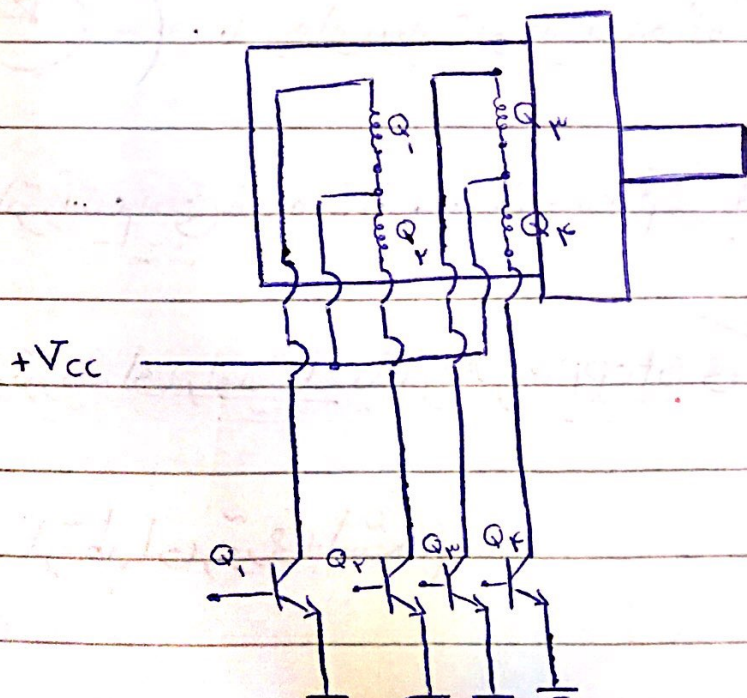 Q۱
Q۳
Q۲
Q۴
+Vcc
Q۱ Q۲ Q۳ Q۴